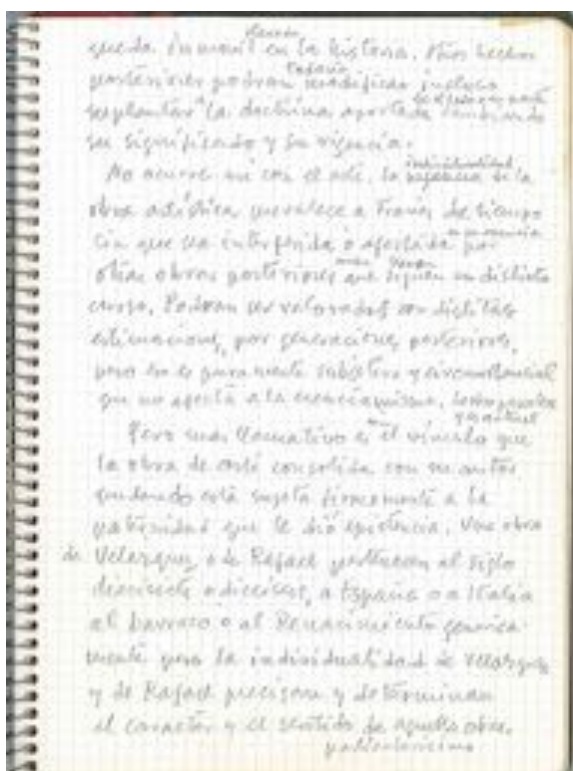 queda inmovil en la historia. Otros hechos
posteriores podran todavia modificar incluso
suplantar la doctrina aportada cambiando
su significado y su vigencia.
No ocurre asi con el arte, la individualidad de la
obra artistica prevalece a traves de tiempo
sin que sea interferida o afectada por
otras obras posteriores que siguen un distinto
curso. Podran ser valoradas con distintas
estimaciones, por generaciones posteriores,
pero eso es puramente subjetivo y circunstancial
que no afecta a la esencia misma,
Pero mas llamativo es el vinculo que
la obra de arte consolida con su autor
quedando esta sujeta firmemente a la
paternidad que le dió existencia. Una obra
de Velazquez, o de Rafael pertenecen al siglo
diecisiete o dieciseis, a España o a Italia
al barroco o al Renacimiento generica-
mente pero la individualidad de Velazquez
y de Rafael precisan y determinan
el caracter y el sentido de aquella obra.